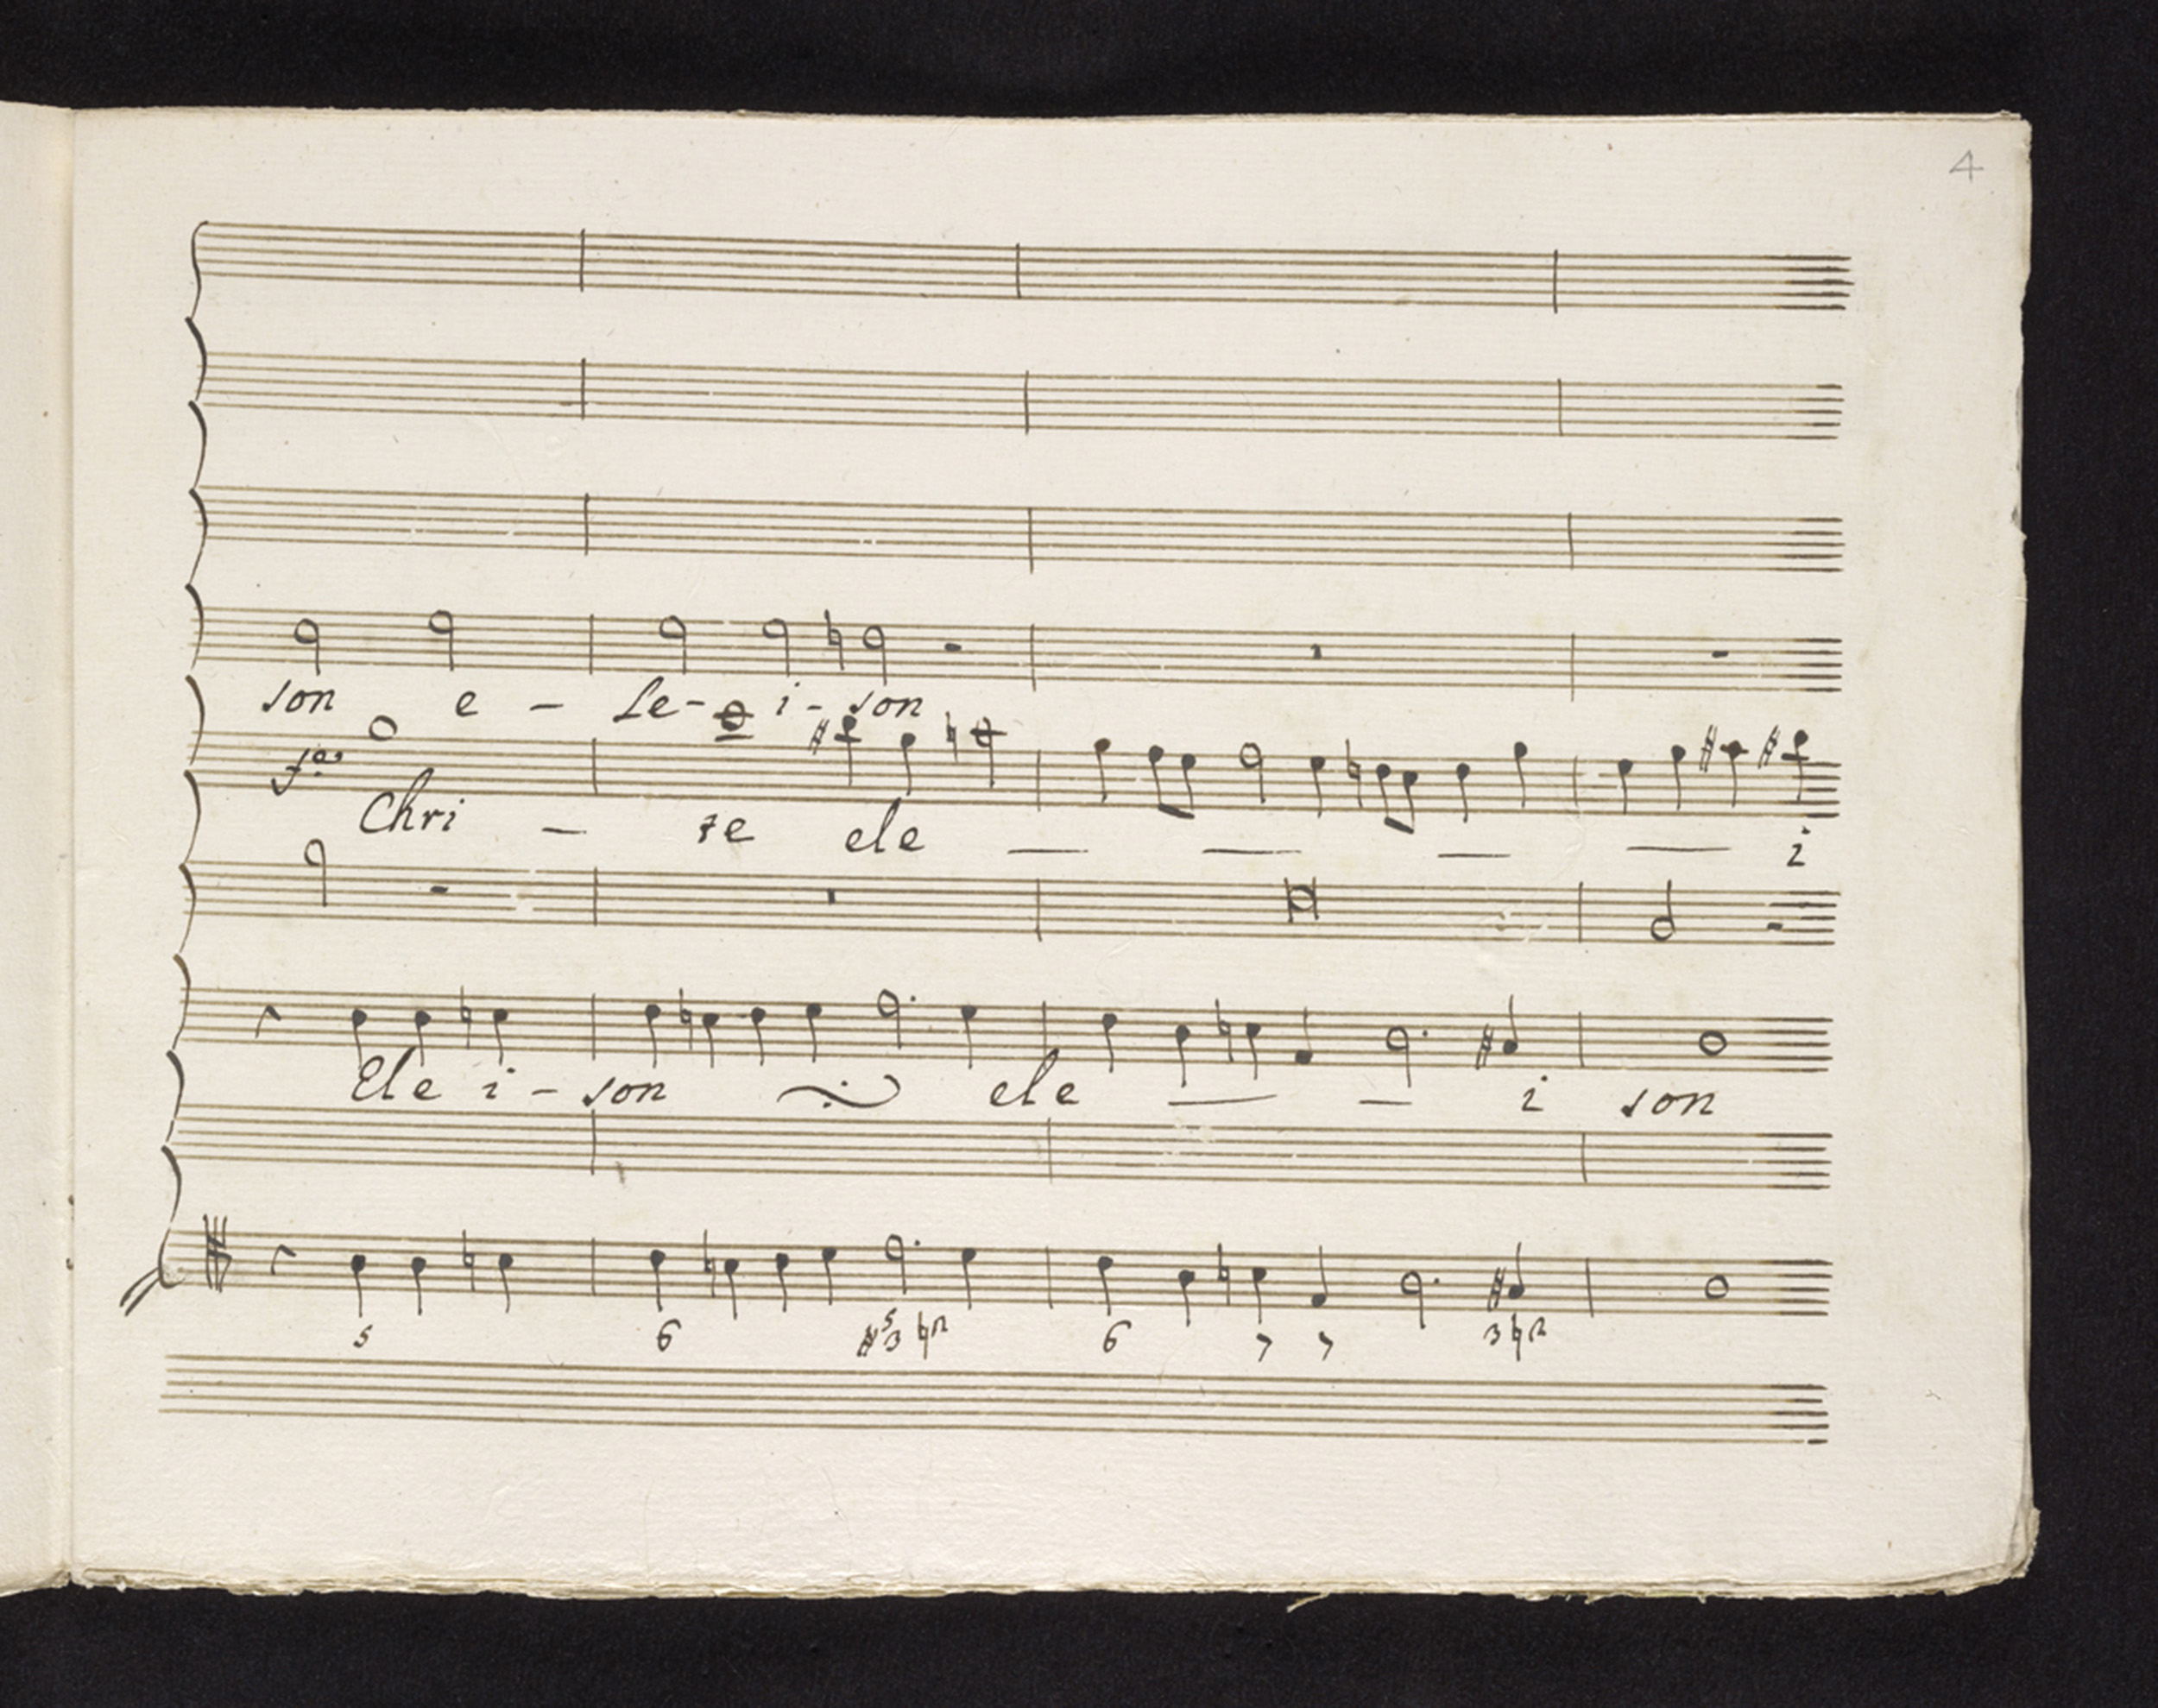 4
son e - le - i - son
fo:
Chri - ste ele — — — — i
Ele i - son ele — — i son
5 6 #5 3 ♮2 6 7 7 3 ♮2